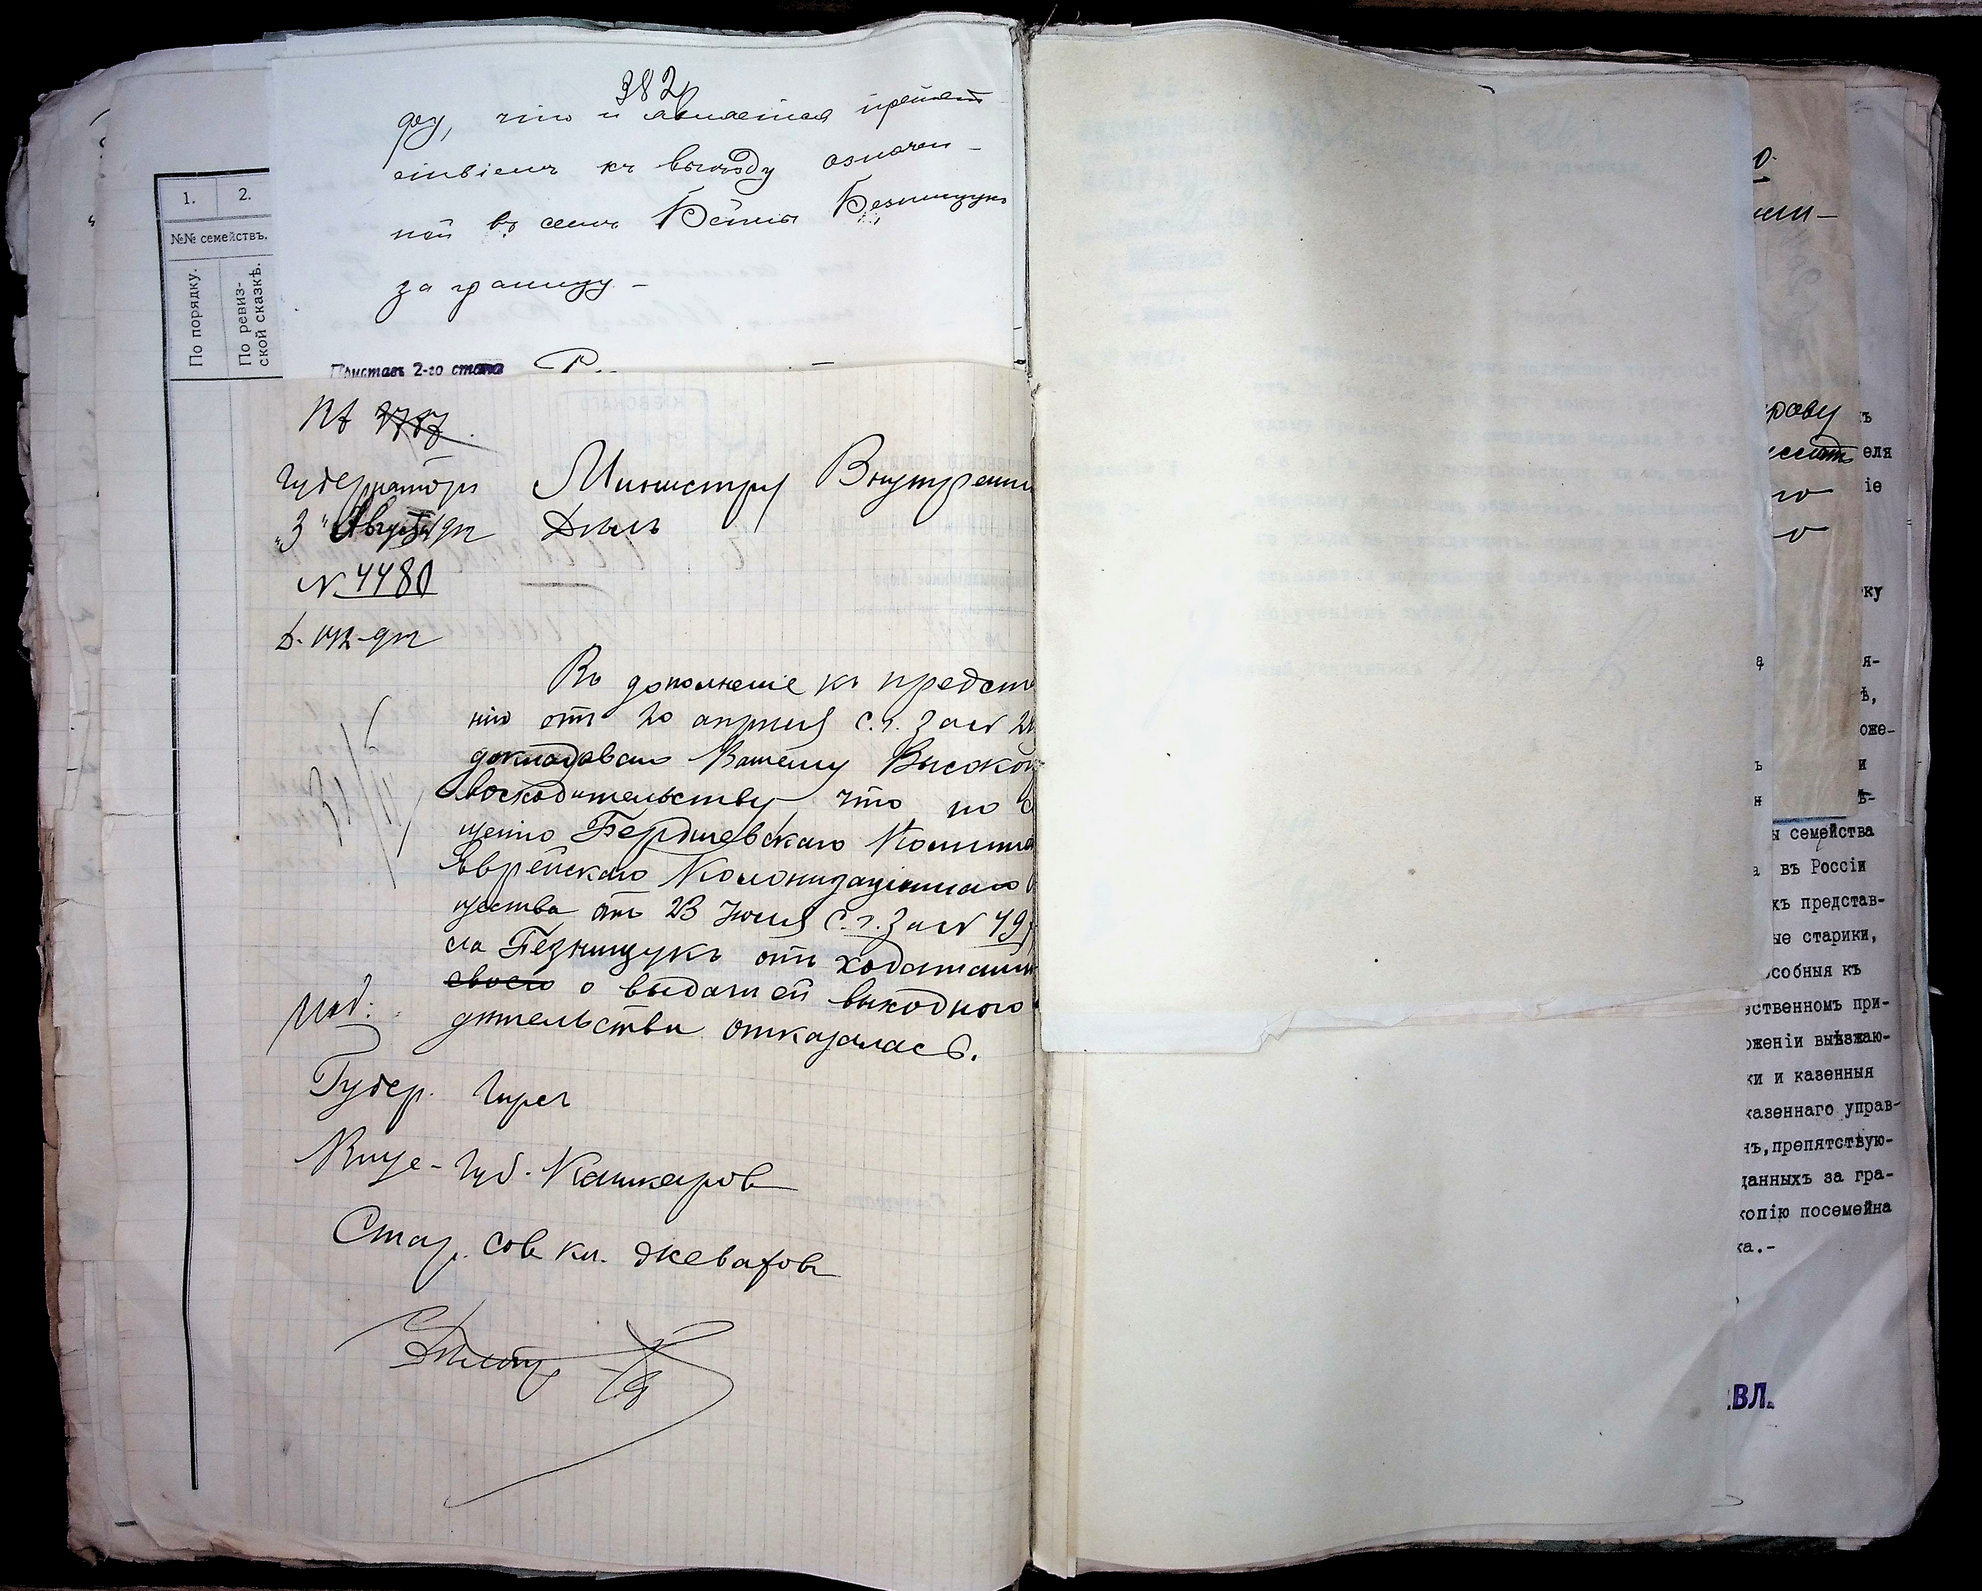 382
ду, что и является препят
ствіемъ къ выѣзду означен-
ной въ семъ Бейлы Безнищукъ
за границу –
1. 2.
№№ семействъ.
По порядку.
По ревиз-
ской сказкѣ.
Приставъ 2-го стана
Губернаторъ
Министру Внутренн
3" Августа
Дѣлъ
№ 4480
Въ дополненіе къ предст
нію отъ 20 апрѣля с.г. за №
докладываю Вашему Высоко
восходительству что по с
щенію Бердичевскаго Комите
Еврейскаго Колонизаціоннаго
щества отъ 23 Іюля с.г. за № 49
ла Безнищукъ отъ ходатайст
своего о выдачѣ ей выходного
дѣтельства отказалась.
Под:
Губер. Гирсъ
Вице-Губ. Кашкаровъ
Стар. сов кн. Жеваховъ
КІЕВСКАГО
ели-
праву
го
о
ъ
еля
іе
ку
а
я-
ѣ,
оже-
ъ
и
н
ѣ-
ы семейства
а въ Россіи
къ представ-
ые старики,
особныя къ
ественномъ при-
оженіи выѣзжаю-
ки и казенныя
казеннаго управ-
нъ,препятствую-
данныхъ за гра-
копію посемейна
ка.-
ВЛ.